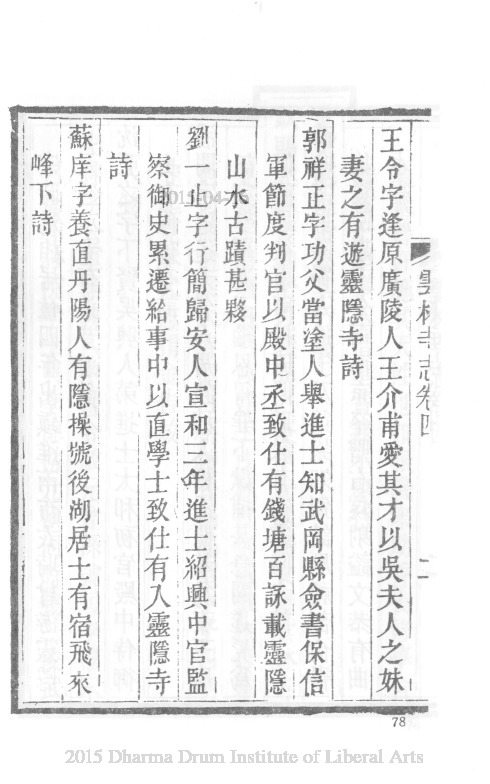 雲林寺志卷四
二
王令字逢原廣陵人王介甫愛其才以吳夫人之妹
妻之有遊靈隱寺詩
郭祥正字功父當塗人舉進士知武岡縣僉書保信
軍節度判官以殿中丞致仕有錢塘百詠載靈隱
山水古蹟甚夥
劉一止字行簡歸安人宣和三年進士紹興中官監
察御史累遷給事中以直學士致仕有入靈隱寺
詩
蘇庠字養直丹陽人有隱操號後湖居士有宿飛來
峰下詩
78
2015 Dharma Drum Institute of Liberal Arts